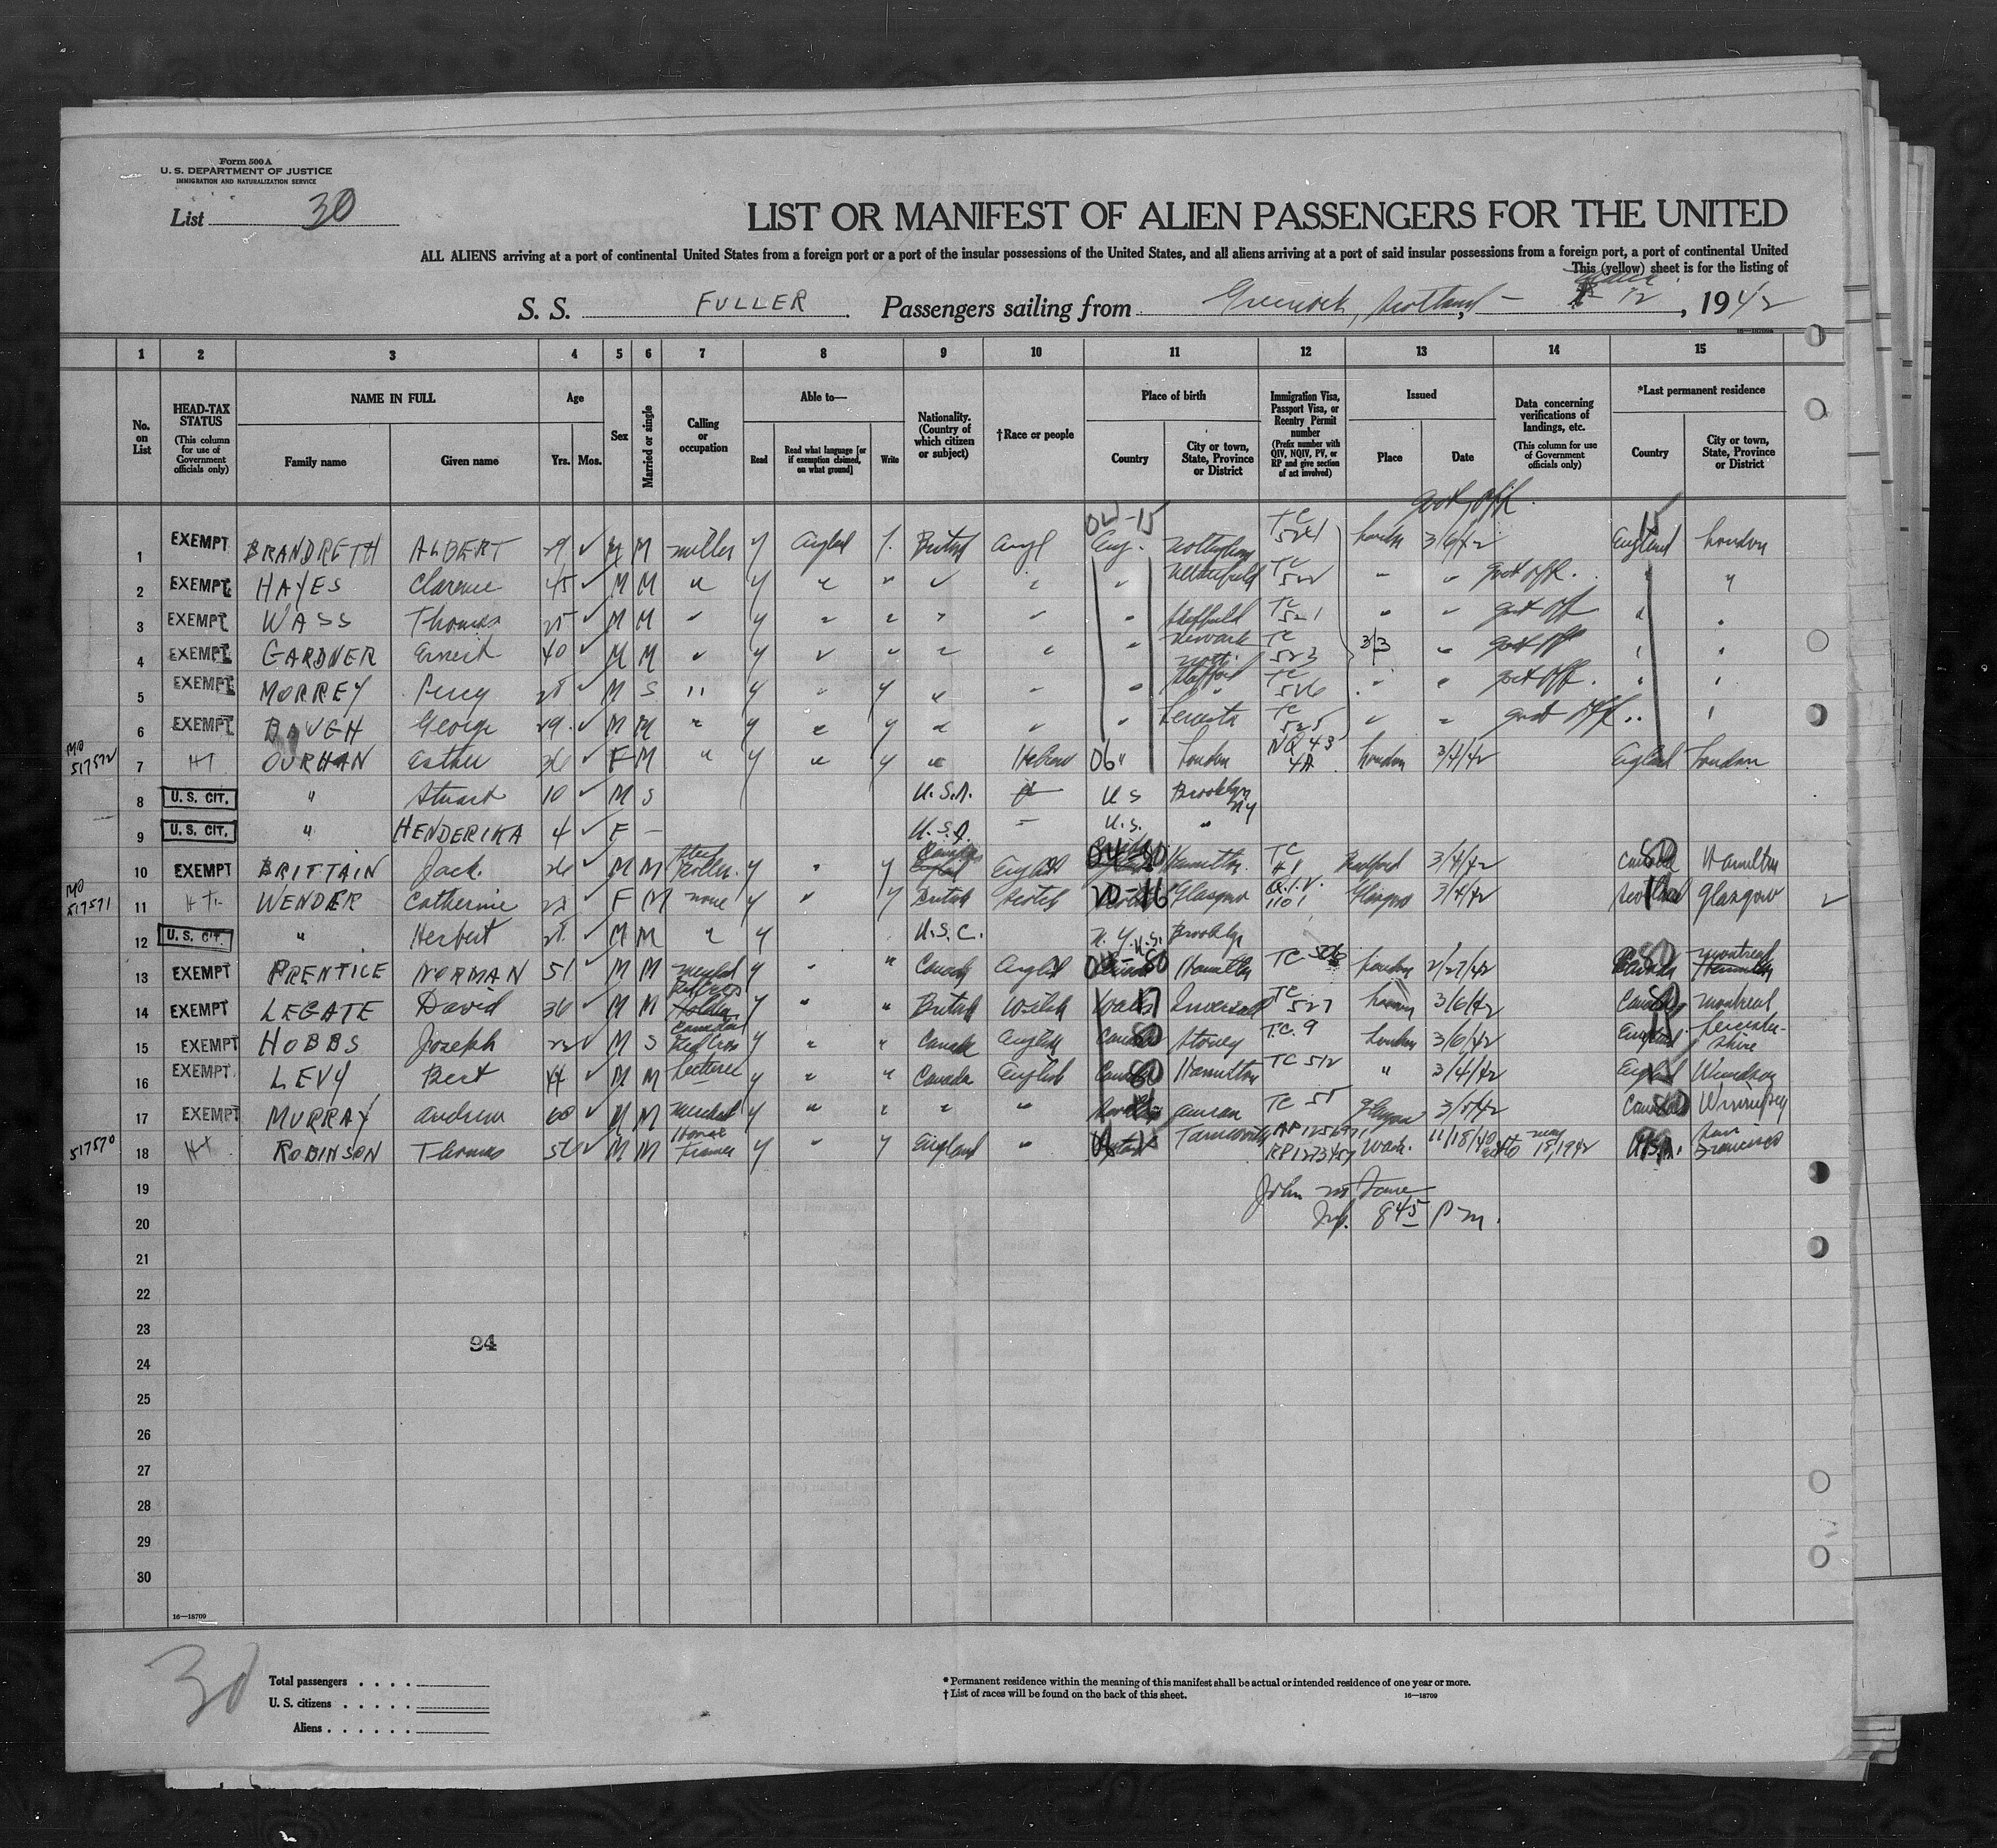 Form 500 A
U. S. DEPARTMENT OF JUSTICE
IMMIGRATION AND NATURALIZATION SERVICE
List 30
LIST OR MANIFEST OF ALIEN PASSENGERS FOR THE UNITED
ALL ALIENS arriving at a port of continental United States from a foreign port or a port of the insular possessions of the United States, and all aliens arriving at a port of said insular possessions from a foreign port, a port of continental United
This (yellow) sheet is for the listing of
S. S. FULLER Passengers sailing from Greenock, Scotland - 12, 1942
1 2 3 4 5 6 7 8 9 10 11 12 13 14 15
No. on List
HEAD-TAX STATUS (This column for use of Government officials only)
NAME IN FULL
Family name Given name
Age
Yrs. Mos.
Sex
Married or single
Calling or occupation
Able to—
Read Read what language [or if exemption claimed, on what ground] Write
Nationality. (Country of which citizen or subject)
†Race or people
Place of birth
Country City or town, State, Province or District
Immigration Visa, Passport Visa, or Reentry Permit number (Prefix number with QIV, NQIV, PV, or RP and give section of act involved)
Issued
Place Date
Data concerning verifications of landings, etc. (This column for use of Government officials only)
*Last permanent residence
Country City or town, State, Province or District
Govt Off.
1 EXEMPT BRANDRETH ALBERT 29 M M miller y British Eng. Nottingham TC 524 London 3/6/42 England London
2 EXEMPT HAYES Clarence 45 M M " y " " TC 522 " " Govt Off. " "
3 EXEMPT WASS Thomas 25 M M " y " " " Sheffield TC 521 " " Govt Off "
4 EXEMPT GARDNER Ernest 40 M M " y " " " Newark Nott. TC 523 3/3 " Govt Off "
5 EXEMPT MORREY Percy M S " y " y " " TC 526 " " Govt Off. "
6 EXEMPT BAUGH George 29 M M " y " y " " TC 525 " " Govt Off "
MO 517572 7 HT OURHAN Esther 36 F M " y " y " Hebrew 06 " London NQ 43 London 3/4/42 England London
8 U. S. CIT. " Stuart 10 M S U.S.A. U S Brooklyn NY
9 U. S. CIT. " HENDERIKA 4 F - U.S.A. U.S. "
10 EXEMPT BRITTAIN Jack 26 M M Steel y " y English Hamilton TC Bradford 3/4/42 Canada Hamilton
MO 517571 11 HT WENDER Catherine F M none y " y British Scotch Glasgow Q.I.V. 1101 Glasgow 3/4/42 Scotland Glasgow
12 U. S. CIT. " Herbert M M " y U.S.C. N.Y. U.S. Brooklyn
13 EXEMPT PRENTICE NORMAN 51 M M y " " Canada English 80 Hamilton TC London 2/27/42 80 Montreal
14 EXEMPT LEGATE David 36 M M y " " British Welsh Wales TC 527 London 3/6/42 Canada Montreal
15 EXEMPT HOBBS Joseph 22 M S Canadian Red Cross y " " Canada English Canada Stoney T.C. 9 London 3/6/42 England Leicester-shire
16 EXEMPT LEVY Bert 44 M M Lecturer y " " Canada English Canada Hamilton TC 512 " 3/4/42 England Windsor
17 EXEMPT MURRAY Andrew 60 M M y " " " " TC 55 Glasgow 3/5/42 Canada Winnipeg
517570 18 HT ROBINSON Thomas 56 M M Horse Trainer y " y England " Tamworth RP 1273457 Wash. 11/18/40 May 18, 1942 U.S.A. San Francisco
19 John M
20 Insp. 8 45 P m.
21
22
23
94
24
25
26
27
28
29
30
16—18709
30
Total passengers . . . .
U. S. citizens . . . . .
Aliens . . . . . .
*Permanent residence within the meaning of this manifest shall be actual or intended residence of one year or more.
†List of races will be found on the back of this sheet. 16—18709